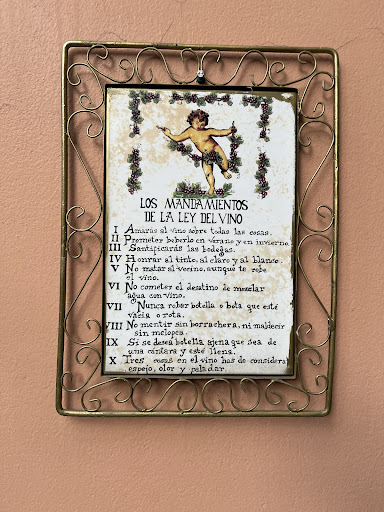 LOS MANDAMIENTOS
DE LA LEY DEL VINO
I Amarás al vino sobre todas las cosas.
II Prometer beberlo en verano y en invierno
III Santificarás las bodegas.
IV Honrar al tinto, al claro y al blanco.
V No matar al vecino, aunque te robe
el vino.
VI No cometer el desatino de mezclar
agua con vino.
VII Nunca robar botella o bota que esté
vacía o rota.
VIII No mentir sin borrachera, ni maldecir
sin melopea.
IX Si se desea botella ajena que sea de
una cántara y esté llena.
X Tres cosas en el vino has de considerar
espejo, olor y paladar